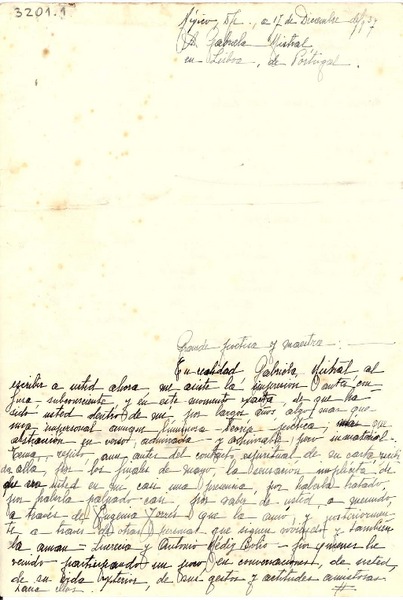 3201.1
México, D.F., a 17 de Diciembre de 1937
A Gabriela Mistral,
en Lisboa, de Portugal.
Grande poetisa y maestra:
En realidad Gabriela Mistral, al
escribir a usted ahora, me asiste la impresión
subconsciente, y en este momento exacta, de que ha
sido usted dentro de mí, por largos años algo más que
impersonal aunque luminosa poética; más que
abstracción en verso, admirada y admirable; pero inmaterial.
repito, aun antes del contacto espiritual de su carta
por los finales de mayo, la sensación implícita, de
que era usted en mí casi una presencia, por haberla tratado,
por haberla palpado casi por saber de usted a menudo
a través de Eugenia Torres que la amó y posteriormen-
te a través de otras personas que siguen y también
la aman - Lucrecia y Antonio Médiz Bolio - por quienes he
venido participando un poco en conversaciones, de usted,
de su vida exterior, de sus gestos y actitudes amistosas
para ellos.